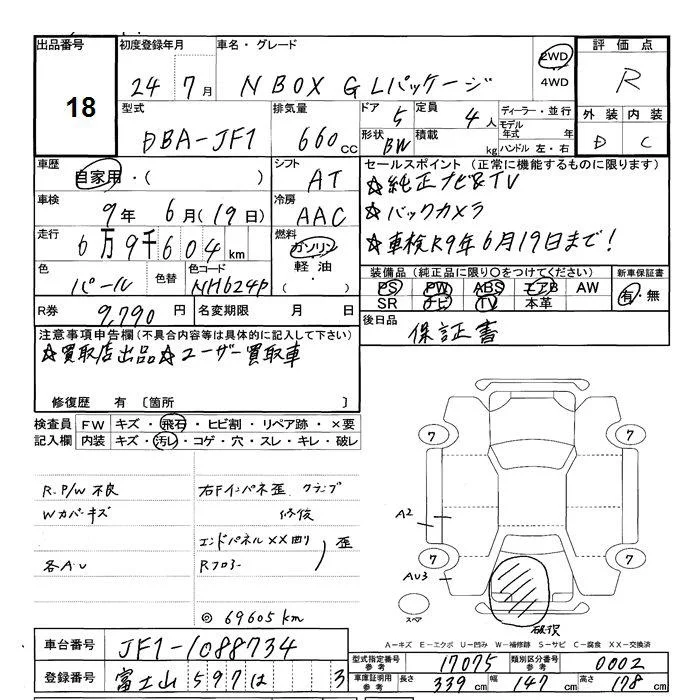 出品番号 初度登録年月 車名・グレード 評価点
18 24年 7月 N BOX G Lパッケージ 2WD 4WD R
型式 排気量 ドア 5 定員 4人 ディーラー・並行 外装 内装
DBA-JF1 660cc 形状 BW 積載 kg モデル年式 年 ハンドル 左・右 D C
車歴 自家用・( ) シフト AT セールスポイント (正常に機能するものに限ります)
☆純正ナビ&TV
車検 9年 6月(19日) 冷房 AAC ☆バックカメラ
走行 6万9千604km 燃料 ガソリン・軽油・( ) ☆車検R9年6月19日まで!
色 パール 色替 色コード NH624P 装備品(純正品に限り○をつけてください) 新車保証書
PS PW ABS エアB AW 有・無
SR ナビ TV 本革
R券 9,790円 名変期限 月 日 後日品 保証書
注意事項申告欄(不具合内容等は具体的に記入して下さい)
☆買取店出品☆ユーザー買取車
修復歴 有 〔箇所 〕
検査員 FW キズ・飛石・ヒビ割・リペア跡・×要
記入欄 内装 キズ・汚レ・コゲ・穴・スレ・キレ・破レ
7 7
R.P/W 不良 右Fインパネ歪 クランプ
Wカバーキズ 修復
A2
エンドパネルXX回り 歪
各AU Rフロアー
7 7
AU3
スペア
◎69605km
破役
A-キズ E-エクボ U-凹み W-補修跡 S-サビ C-腐食 XX-交換済
車台番号 JF1-1088734 型式指定番号 参考 17075 類別区分番号 参考 0002
登録番号 富士山 597 は 3 車庫証明用 参考 長さ 339cm 幅 147cm 高さ 178cm